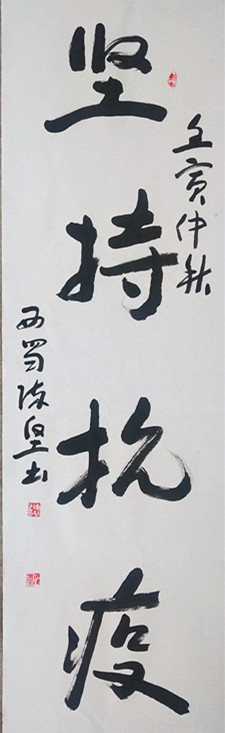 壬寅仲秋
坚持抗疫
西蜀陈坚书